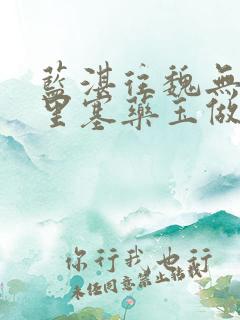 藍湛往魏無
里塞藥玉做
你行我也行
未经同意禁止转载